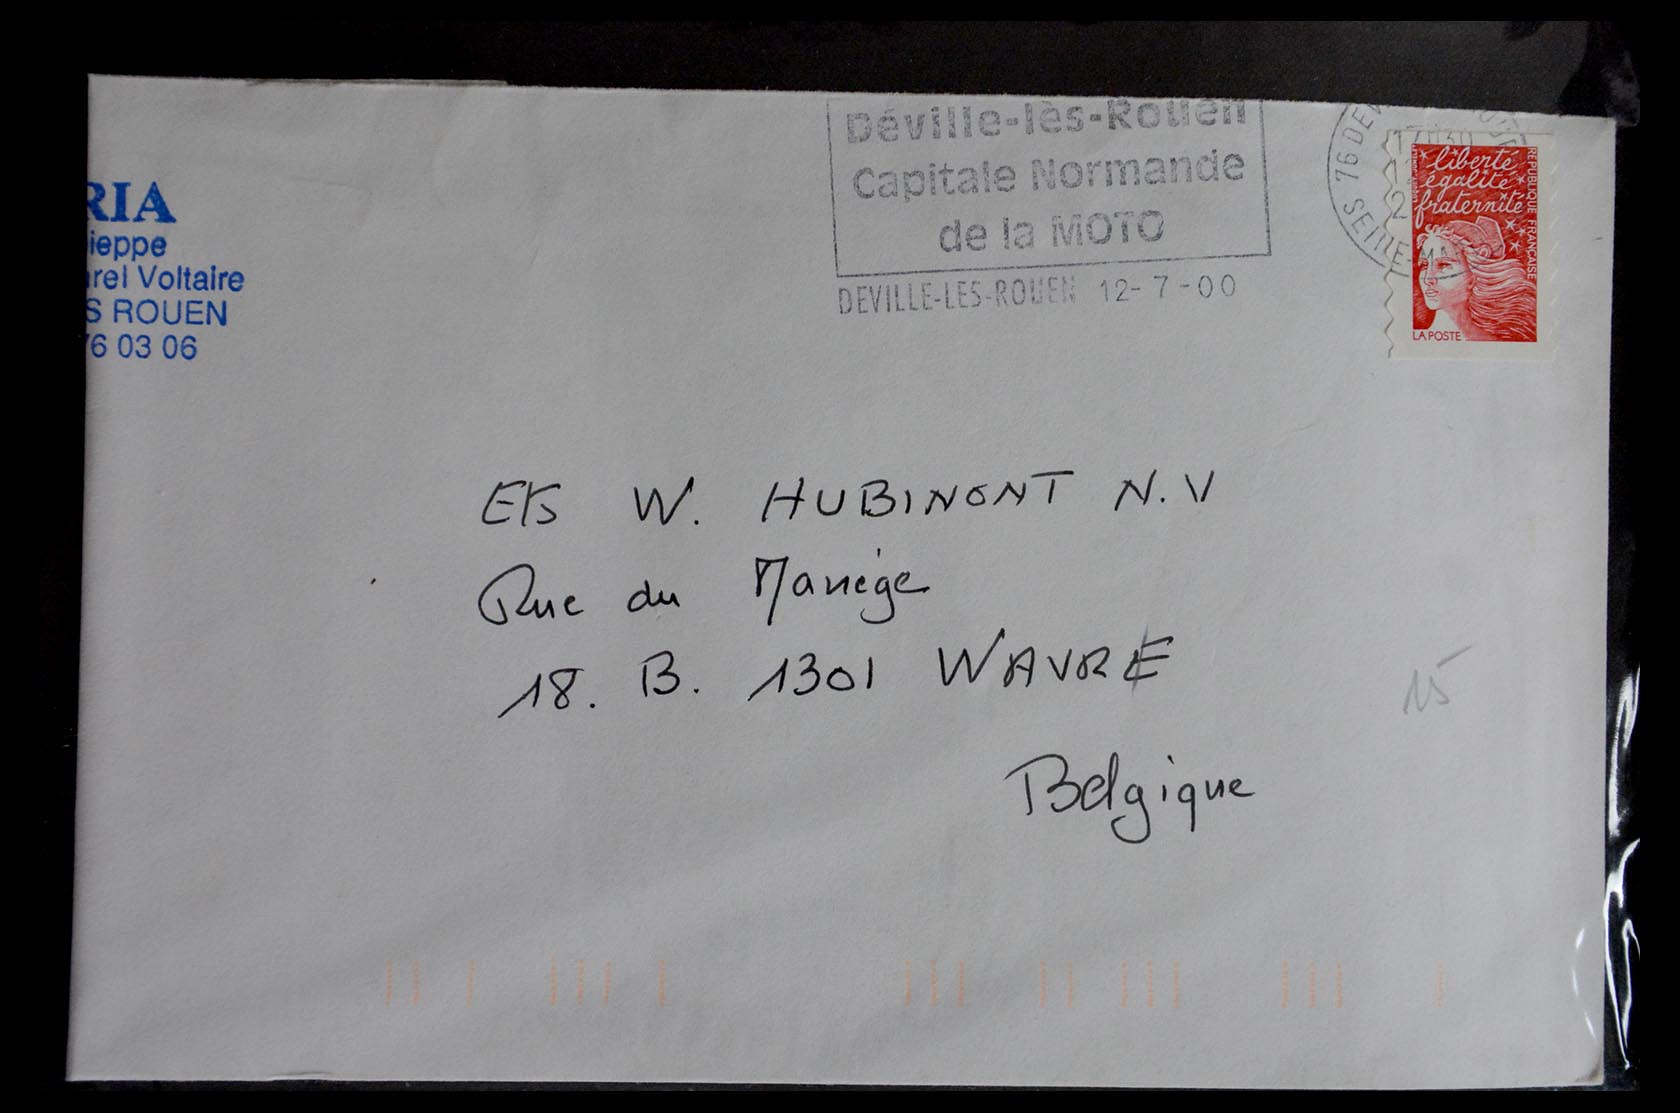 RIA
ieppe
rel Voltaire
S ROUEN
76 03 06
Déville-lès-Rouen
Capitale Normande
de la MOTO
DEVILLE-LES-ROUEN 12-7-00
76 DEV
SEINE-MA
liberté
égalité
fraternité
RÉPUBLIQUE FRANÇAISE
LA POSTE
Ets W. HUBINONT N.V
Rue du Manège
18. B. 1301 WAVRE
Belgique
15